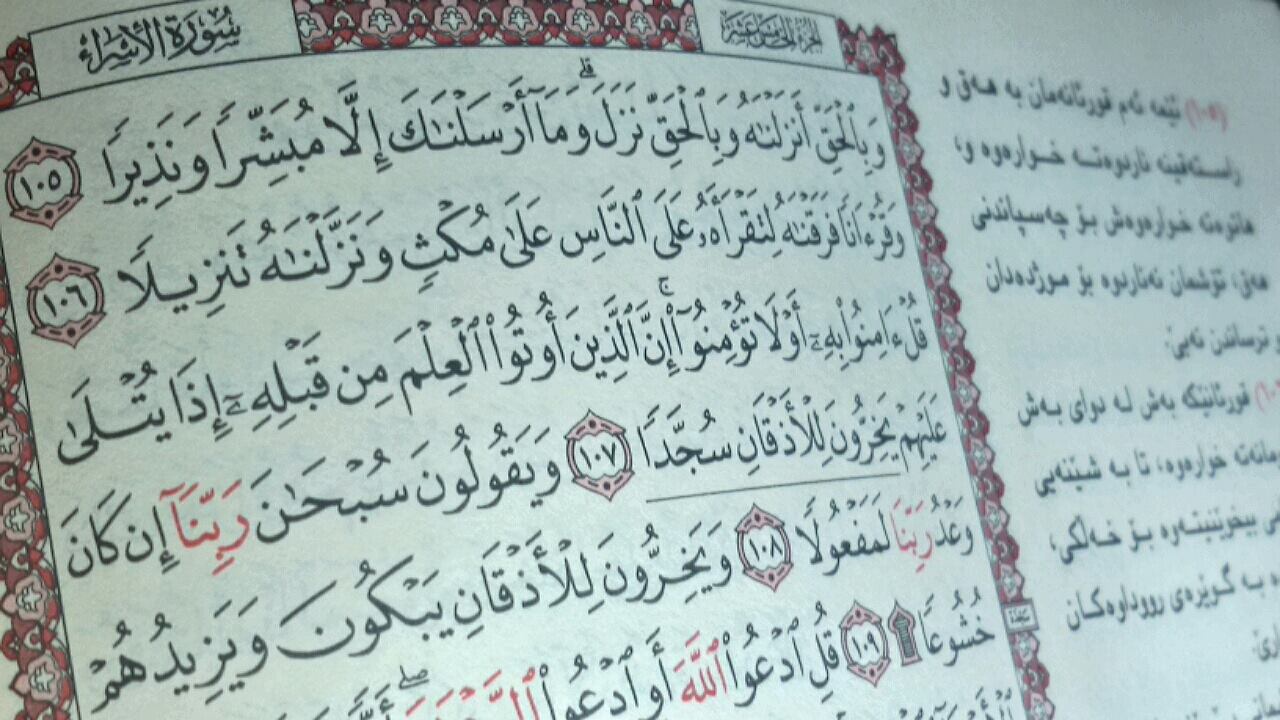 سورة الإسراء
الجزء الخامس عشر
وَبِٱلْحَقِّ أَنزَلْنَٰهُ وَبِٱلْحَقِّ نَزَلَ ۗ وَمَآ أَرْسَلْنَٰكَ إِلَّا مُبَشِّرًا وَنَذِيرًا ١٠٥
وَقُرْءَانًا فَرَقْنَٰهُ لِتَقْرَأَهُۥ عَلَى ٱلنَّاسِ عَلَىٰ مُكْثٍ وَنَزَّلْنَٰهُ تَنزِيلًا ١٠٦
قُلْ ءَامِنُوا۟ بِهِۦٓ أَوْ لَا تُؤْمِنُوٓا۟ ۚ إِنَّ ٱلَّذِينَ أُوتُوا۟ ٱلْعِلْمَ مِن قَبْلِهِۦٓ إِذَا يُتْلَىٰ
عَلَيْهِمْ يَخِرُّونَ لِلْأَذْقَانِ سُجَّدًا ١٠٧ وَيَقُولُونَ سُبْحَٰنَ رَبِّنَآ إِن كَانَ
وَعْدُ رَبِّنَا لَمَفْعُولًا ١٠٨ وَيَخِرُّونَ لِلْأَذْقَانِ يَبْكُونَ وَيَزِيدُهُمْ
خُشُوعًا ۩ ١٠٩ قُلِ ٱدْعُوا۟ ٱللَّهَ أَوِ ٱدْعُوا۟
(١٠٥) ئێمە ئەم قورئانەمان بە هەق و
ڕاستەقینە ناردوەتە خوارەوە و،
هاتوەتە خوارەوەش بۆ چەسپاندنی
هەق، تۆشمان نەناردوە بۆ موژدەدان
و ترساندن نەبێ.
قورئانێکە بەش لە دوای بەش
خوارەوە، تا بە شێنەیی
بیخوێنیتەوە بۆ خەڵکی،
بە گوێرەی ڕووداوەکان